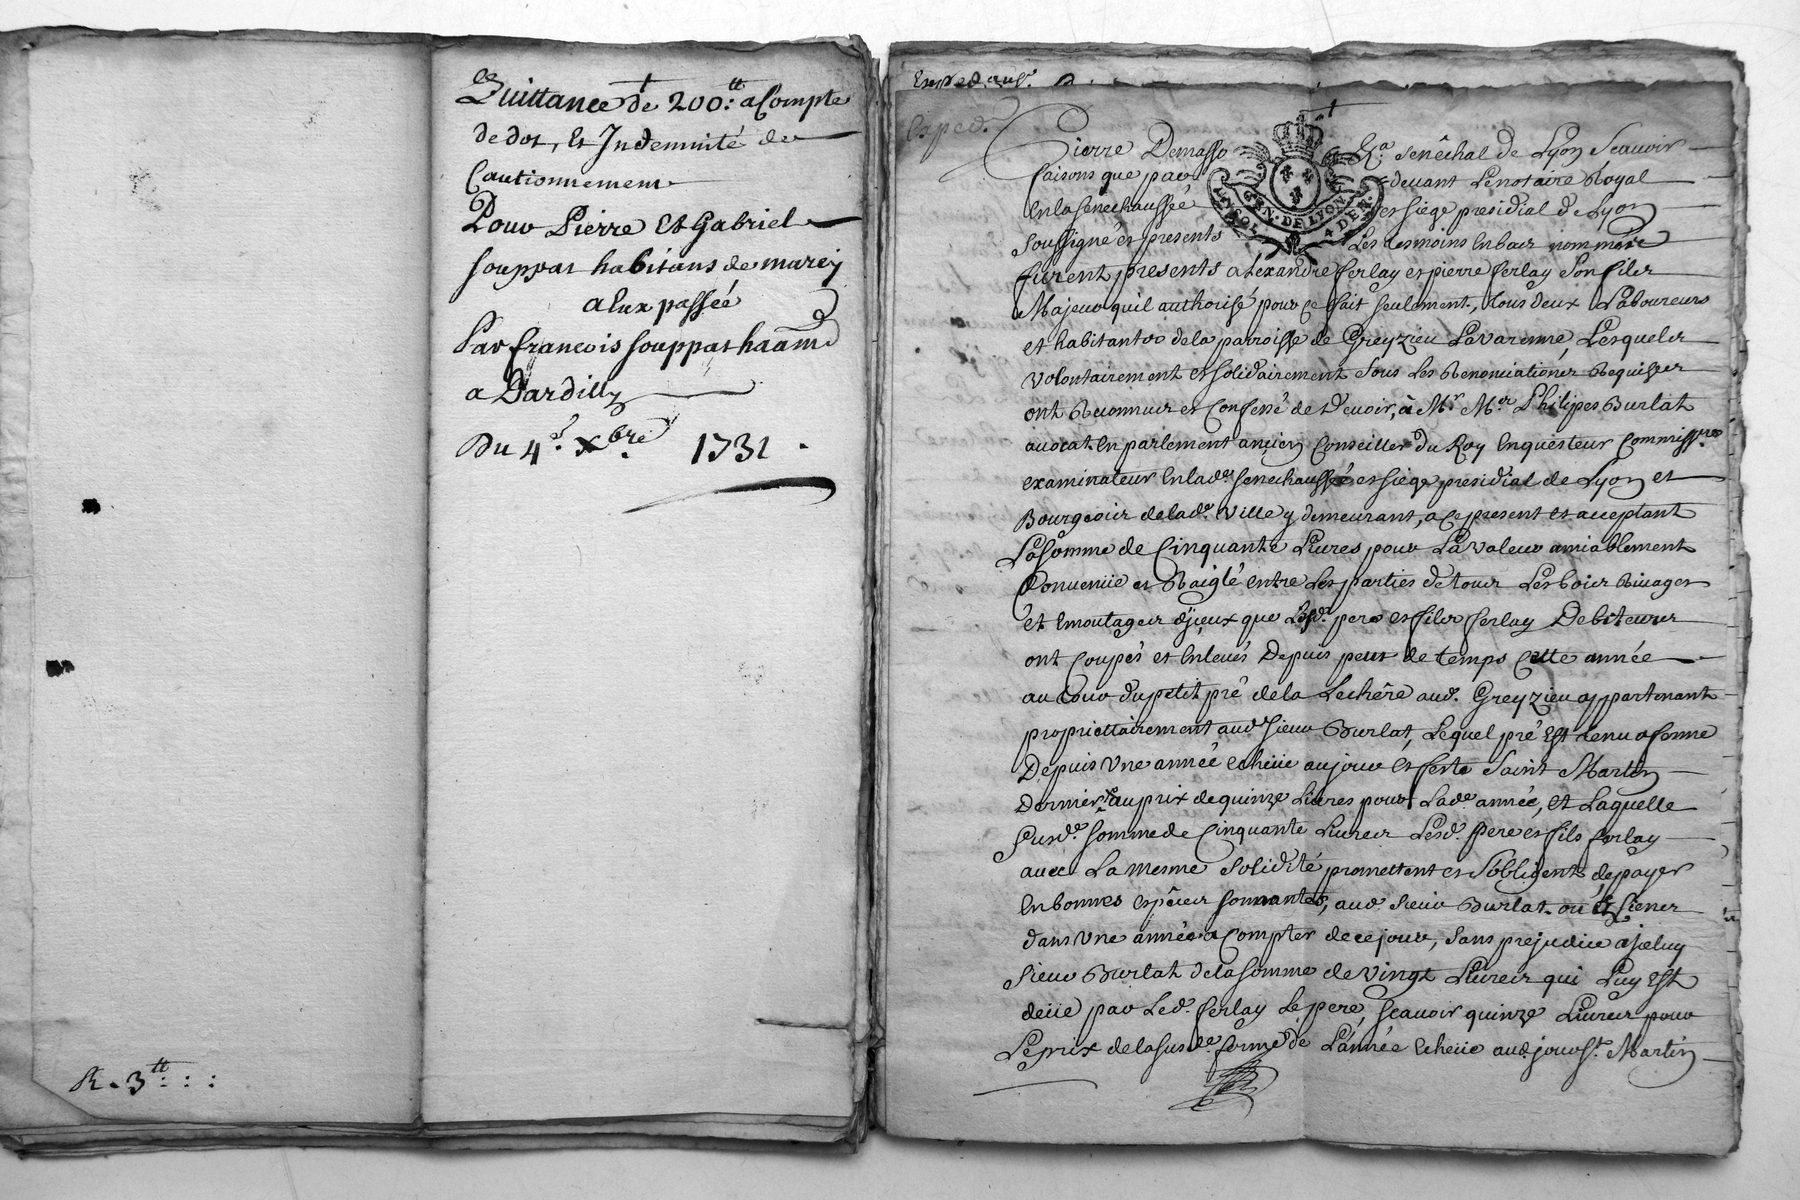 Quittance de 200.tt a Compte
de dot, et Indemnité de
Cautionnement
Pour Pierre Et Gabriel
souppat habitans de marcy
a Eux passée
Par francois souppat
a Dardilly
Du 4.e Xbre 1731.
R. 3tt : :
Exped.
Pierre Demasso senêchal de Lyon Scavoir
faisons que par devant Le notaire Royal
En la senechaussée et siege presidial de Lyon
soussigné et presents Les tesmoins En bas nommés
GEN. DE LYON
furent presents alexandre ferlay et pierre ferlay son fils
Majeur qu'il authorisé pour ce fait seulement, tous deux Laboureurs
et habitants de la parroisse de Greyzieu Lavarenne, Lesquels
volontairement et solidairement sous Les Renonciations Requises
ont Reconnus et Confessé de devoir, à Mr. Me. Philipes Burlat
avocat En parlement ancien Conseiller du Roy Enquesteur Commissre
examinateur En lade. senechaussée et siege presidial de Lyon et
Bourgeois de lade. Ville y demeurant, a ce present et acceptant
La somme de Cinquante Livres pour La valeur amiablement
Convenüe et Raiglé entre Les parties de tous Les bois Rivages
et Emoutages d'jceux que Lesd. pere et fils ferlay Debiteurs
ont Coupés et Enlevés Depuis peu de temps Cette année
au tour du petit pré de la Lechêre aud. Greyzieu appartenant
propriettairement aud. sieur Burlat, Lequel pré Est tenu a ferme
Depuis Une année Echeüe au jour et feste Saint Martin
Dernier au prix de quinze Livres pour Lade. année, et Laquelle
susde. somme de Cinquante Livres Lesd. Pere et fils ferlay
avec La mesme solidité promettent et s'obligent, de payer
En bonnes espêces sonnantes, aud. sieur Burlat ou és siens
dans Une année a Compter de ce jour, sans prejudice a jceluy
sieur Burlat de la somme de vingt Livres qui Luy Est
deüe par Led. ferlay Le pere, scavoir quinze Livres pour
Le prix de la susde. ferme de L'année Echeüe aud. jour St. Martin